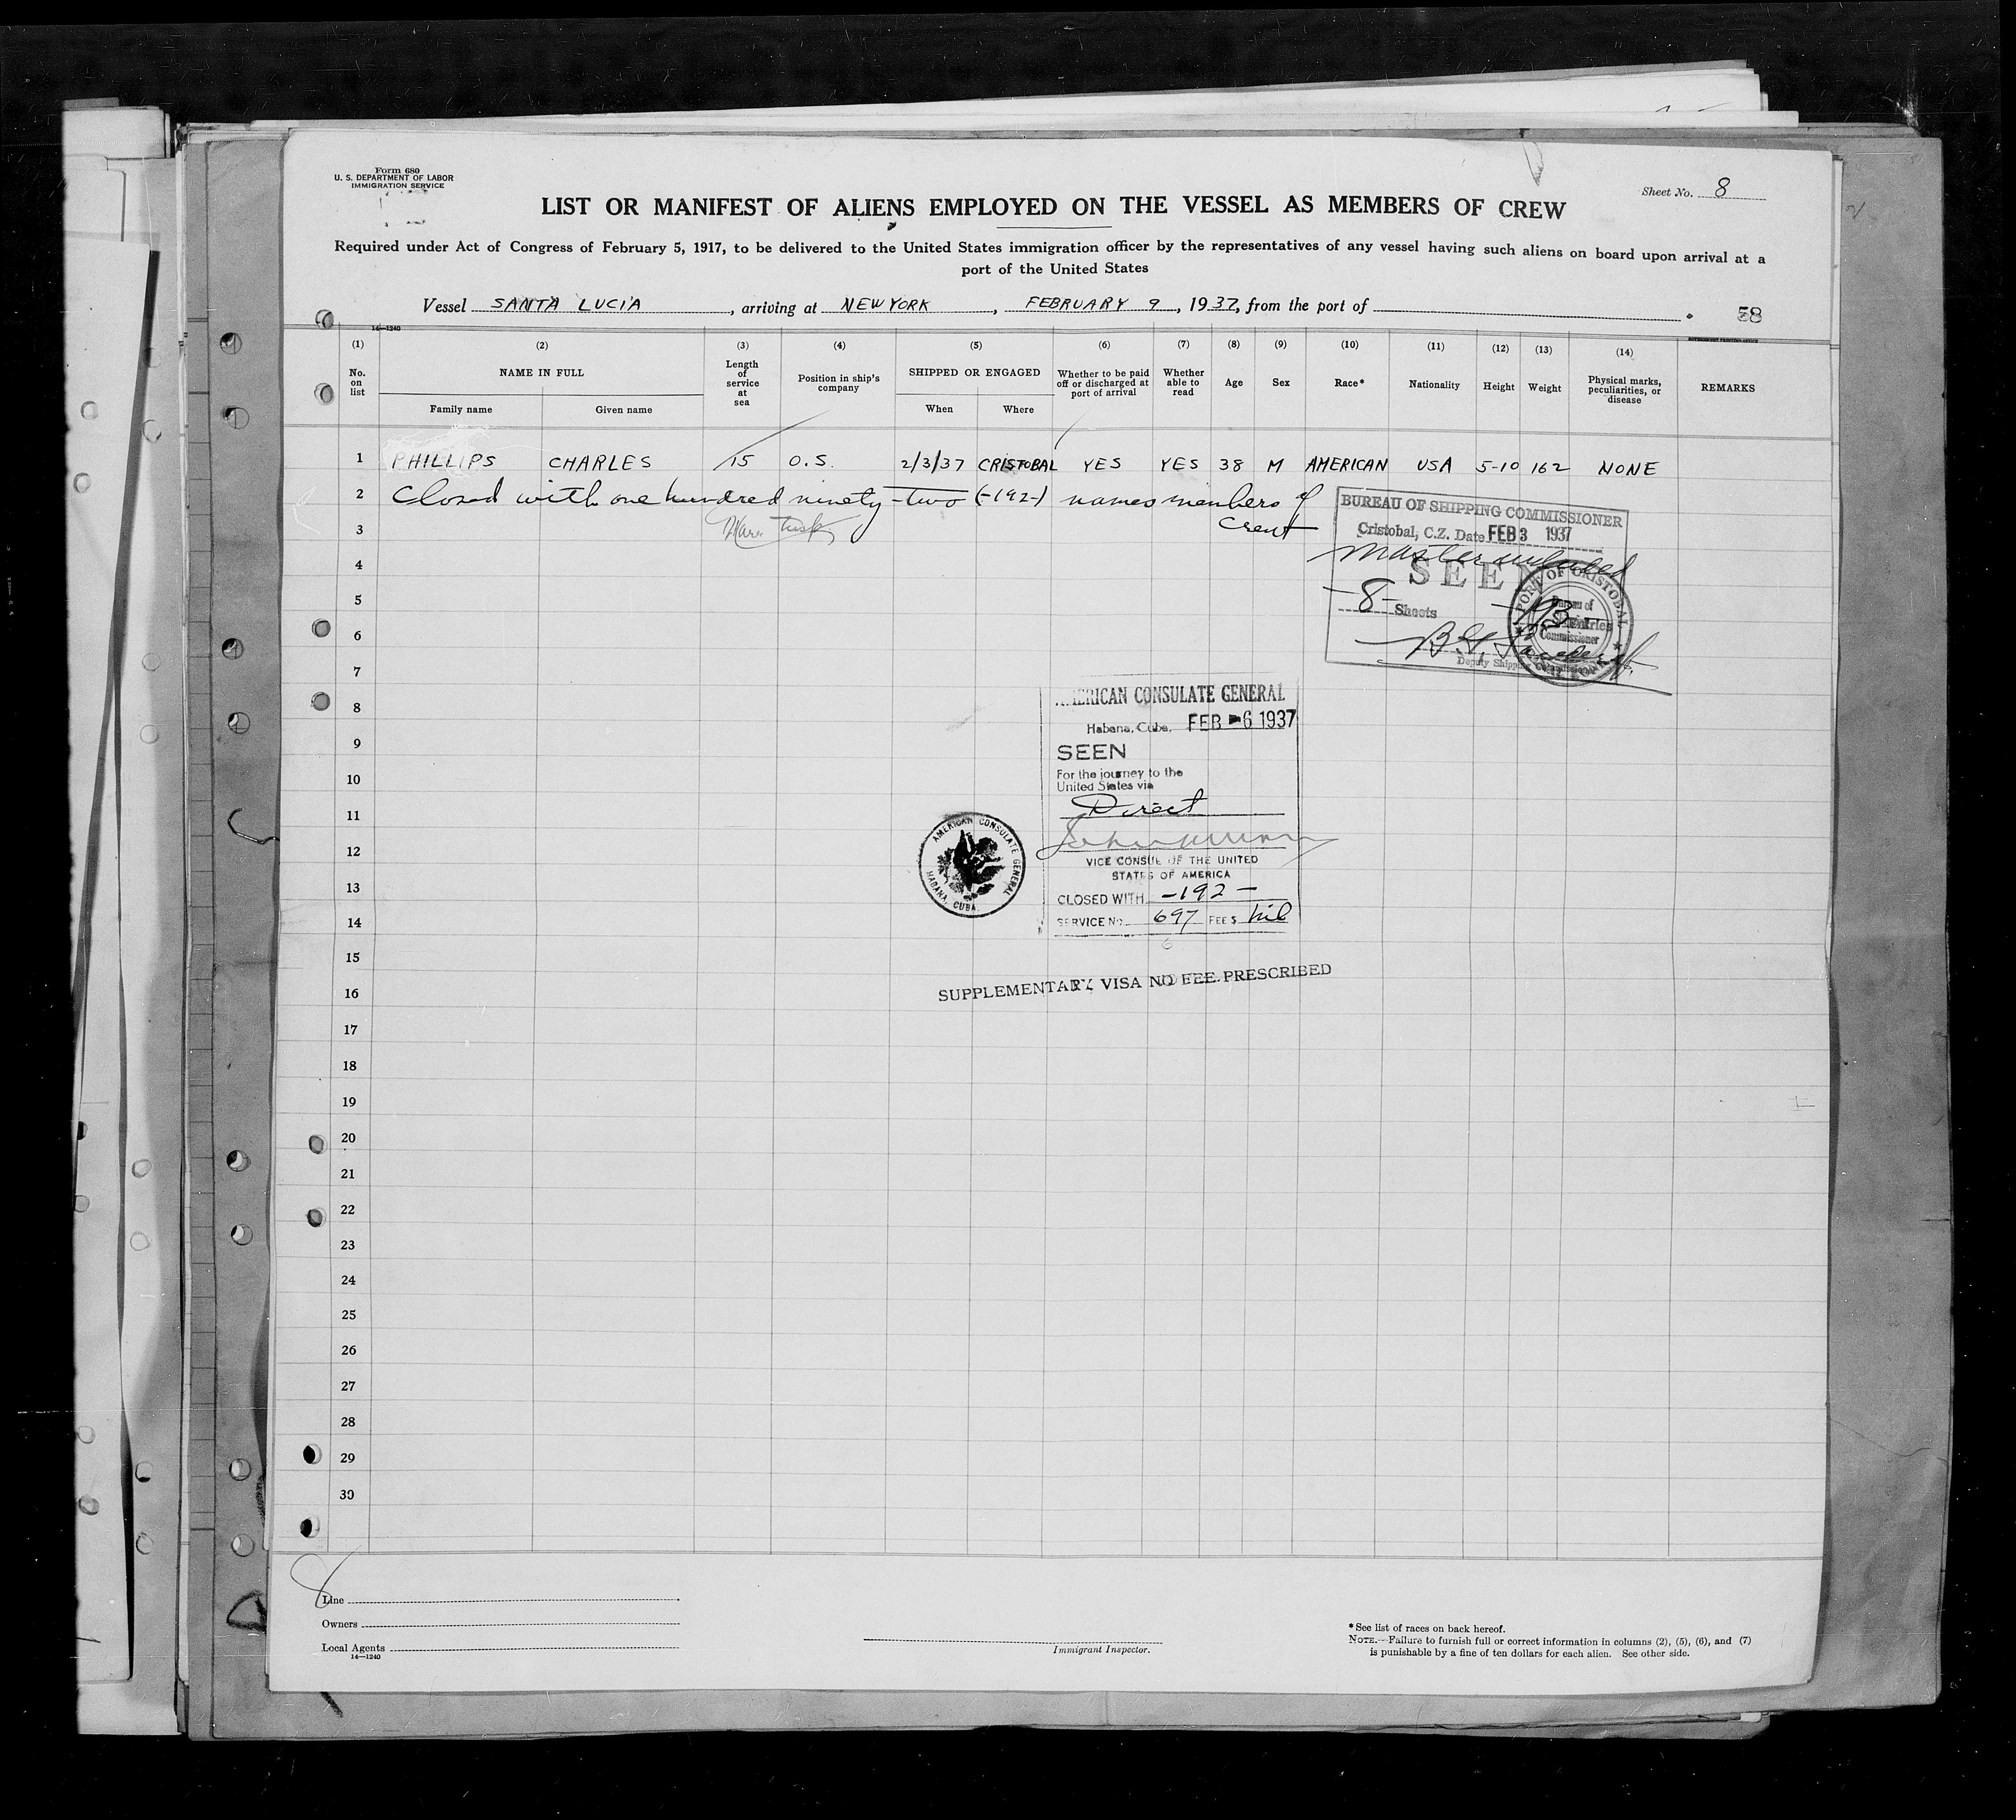 Form 680
U. S. DEPARTMENT OF LABOR
IMMIGRATION SERVICE
Sheet No. 8
LIST OR MANIFEST OF ALIENS EMPLOYED ON THE VESSEL AS MEMBERS OF CREW
Required under Act of Congress of February 5, 1917, to be delivered to the United States immigration officer by the representatives of any vessel having such aliens on board upon arrival at a
port of the United States
Vessel SANTA LUCIA, arriving at NEW YORK, FEBRUARY 9, 1937, from the port of
58
14—1240
(1) (2) (3) (4) (5) (6) (7) (8) (9) (10) (11) (12) (13) (14)
No. on list
NAME IN FULL
Family name
Given name
Length of service at sea
Position in ship's company
SHIPPED OR ENGAGED
When
Where
Whether to be paid off or discharged at port of arrival
Whether able to read
Age
Sex
Race*
Nationality
Height
Weight
Physical marks, peculiarities, or disease
REMARKS
1 PHILLIPS CHARLES 15 O.S. 2/3/37 CRISTOBAL YES YES 38 M AMERICAN USA 5-10 162 NONE
2 Closed with one hundred ninety-two (-192-) names members of
3 Crew
BUREAU OF SHIPPING COMMISSIONER
Cristobal, C.Z. Date FEB 3 1937
Master included
SEEN
-8- Sheets
PORT OF CRISTOBAL
Bureau of
Commissioner
Deputy Shipping Commissioner
4
5
6
7
8
9
10
11
12
13
14
15
16
17
18
19
20
21
22
23
24
25
26
27
28
29
30
AMERICAN CONSULATE GENERAL
Habana, Cuba, FEB -6 1937
SEEN
For the journey to the
United States via
Direct
VICE CONSUL OF THE UNITED
STATES OF AMERICA
CLOSED WITH -192-
SERVICE No. 697 FEES nil
AMERICAN CONSULATE GENERAL
HABANA, CUBA.
SUPPLEMENTARY VISA NO FEE PRESCRIBED
8
Line
Owners
Local Agents
14—1240
Immigrant Inspector.
*See list of races on back hereof.
NOTE.—Failure to furnish full or correct information in columns (2), (5), (6), and (7)
is punishable by a fine of ten dollars for each alien. See other side.